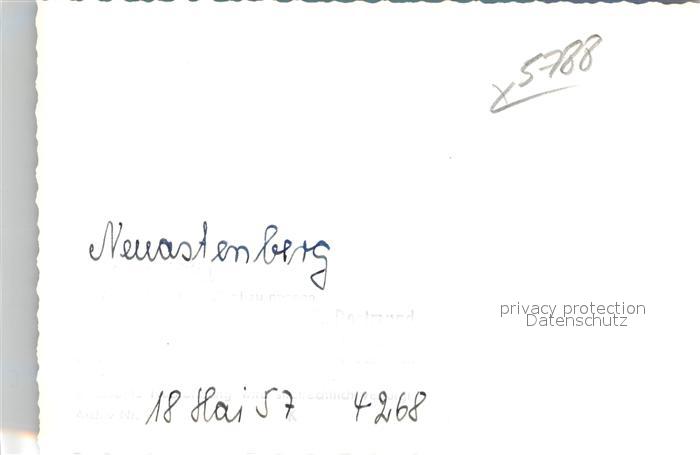 x5788
Neuastenberg
Dortmund
privacy protection
Datenschutz
18 Mai 57 4268